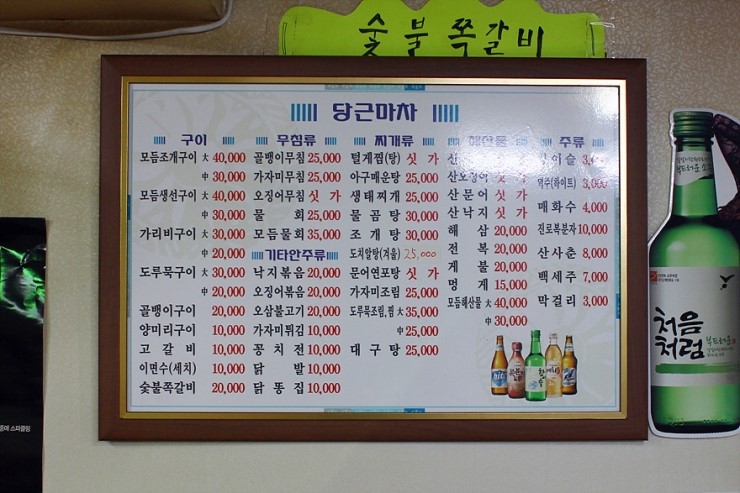 숯불쪽갈비
당근마차
구이
모듬조개구이 大 40,000
中 30,000
모듬생선구이 大 40,000
中 30,000
가리비구이 大 30,000
中 20,000
도루묵구이 大 30,000
中 20,000
골뱅이구이 20,000
양미리구이 10,000
고갈비 10,000
이면수(세치) 10,000
숯불쪽갈비 20,000
무침류
골뱅이무침 25,000
가자미무침 25,000
오징어무침 싯가
물회 25,000
모듬물회 35,000
기타안주류
낙지볶음 20,000
오징어볶음 20,000
오삼불고기 20,000
가자미튀김 10,000
꽁치전 10,000
닭발 10,000
닭똥집 10,000
찌개류
털게찜(탕) 싯가
아구매운탕 30,000
생태찌개 25,000
물곰탕 30,000
조개탕 30,000
도치알탕(겨울) 25,000
문어연포탕 싯가
가자미조림 25,000
도루묵조림,찜 大 35,000
中 25,000
대구탕 25,000
해산물
산오징어 싯가
산문어 싯가
산낙지 싯가
해삼 20,000
전복 20,000
개불 20,000
멍게 15,000
모듬해산물 大 40,000
中 30,000
주류
맥주(하이트) 3,000
매화수 4,000
진로복분자 10,000
산사춘 8,000
백세주 7,000
막걸리 3,000
처음
처럼
부드러운